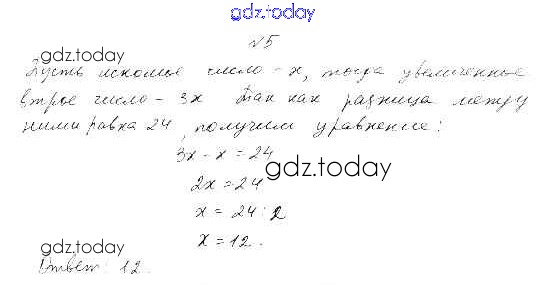 gdz.today
№5
gdz.today
Пусть искомое число - x, тогда увеличенное
втрое число - 3x Так как разница между
ними равна 24, получим уравнение:
3x - x = 24
gdz.today
2x = 24
x = 24 : 2
x = 12.
gdz.today
Ответ: 12.